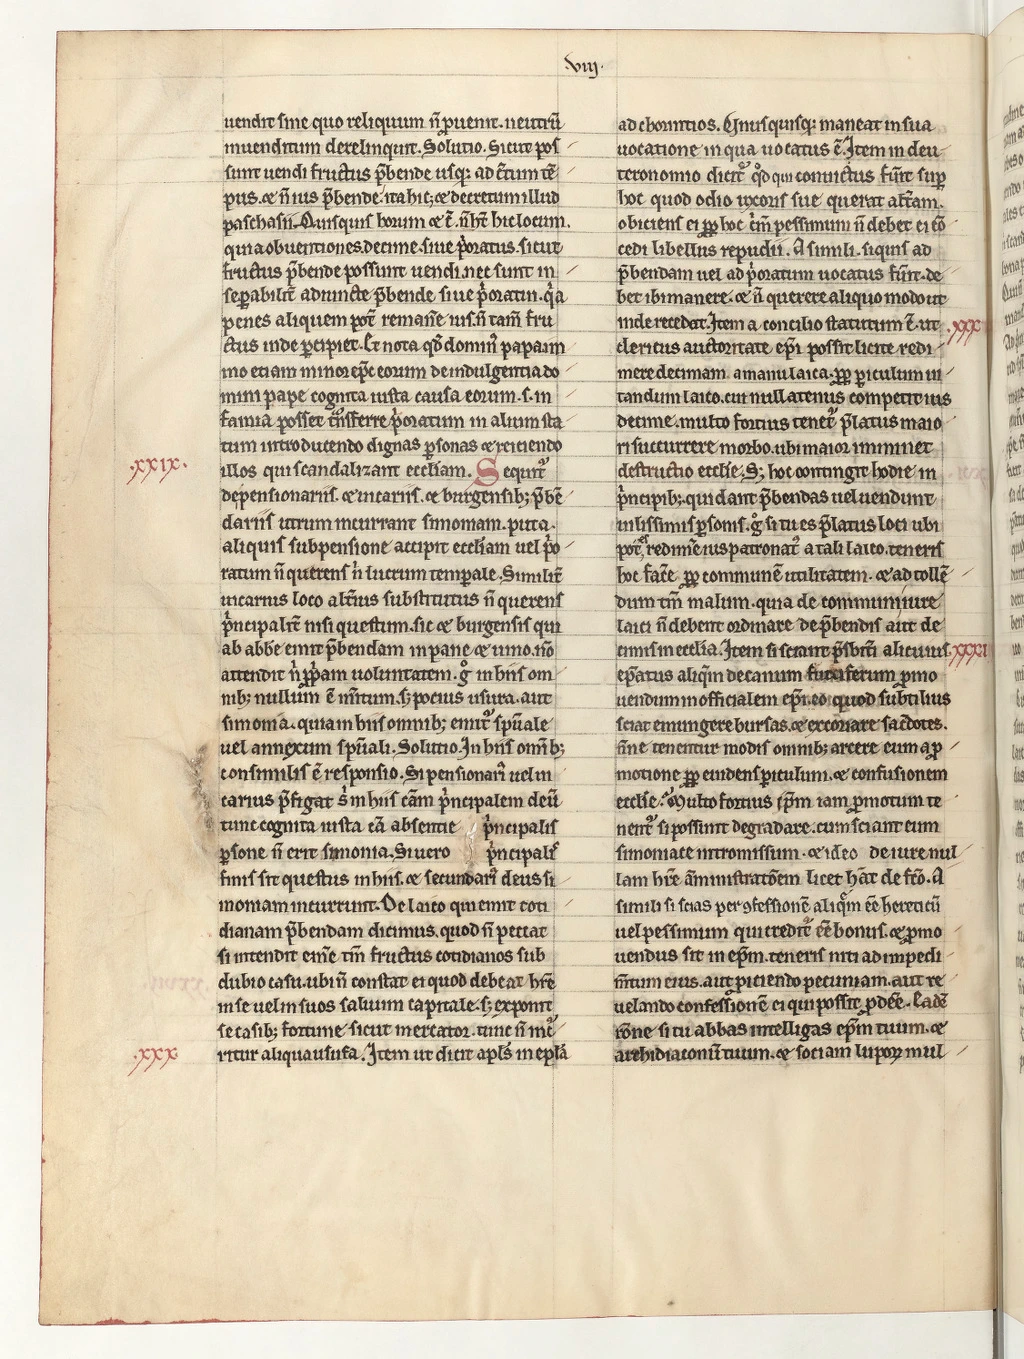 .viij.
uendit sine quo reliquum ñ ꝓuenit. neutrũ
inuenditum derelinquit. Solutio. Sicut pos
sunt uendi fructus p̃bende usq; ad c̃tum tẽ
pus. ⁊ ñ ius p̃bende. ita hic; ⁊ decretum illud
paschasii. Quisquis horum ⁊ c̃. ñ hr̃t hic locum.
quia obuentiones. decime. siue p̃oratus. sicut
fructus p̃bende possunt uendi. nec sunt in
seꝑabilit̃ adiuncte p̃bende siue p̃oratui. q̃a
penes aliquem pot̃ remañe ius. ñ tam̃ fru
ctus inde ꝑcipiet. Et nota qd̃ domin᷒ papa. im
mo etiam minor ep̃c eorum de indulgentia do
mini pape cognita iusta causa eorum. s. in
famia posset t̃nsferre p̃oratum in alium sta
tum introducendo dignas ꝑsonas ⁊ reiciendo
.xxix.
illos qui scandalizant eccl̃iam. Sequit᷒
de pensionariis. ⁊ uicariis. ⁊ burgensib; p̃bẽ
dariis utrum incurrant simoniam. puta.
aliquis sub pensione accipit eccl̃iam uel p̃o
ratum ñ querens ñ lucrum temꝑale. Similit̃
uicarius loco alt̃ius substitutus ñ querens
p̃ncipalit̃ nisi questum. sic ⁊ burgensis qui
ab abbe emit p̃bendam in pane ⁊ uino. ñõ
attendit ñ ꝓp̃am uoluntatem. g̊ in hiis om
nib; nullum ẽ m̃itum. s; pocius usura. aut
simonia. quia in hiis omnib; emit᷒ sp̃uale
uel annexum sp̃uali. Solutio. In hiis om̃ib;
consimilis ẽ responsio. Si pensionari᷒ uel ui
carius p̃figat s̃ in hiis cãm p̃ncipalem deũ
tunc cognita iusta cã absentie p̃ncipalis
ꝑsone ñ erit simonia. Si uero p̃ncipalis
finis sit questus in hiis. ⁊ secundari᷒ deus si
moniam incurrunt. De laico qui emit coti
dianam p̃bendam dicimus. quod ñ peccat
si intendit em̃e tm̃ fructus cotidianos sub
dubio casu. ubi ñ constat ei quod debeat hr̃e
in se uel in suos saluum capitale. s; exponit
se casib; fortune sicut mercator. tunc ñ inc̃
.xxx
ritur aliqua usura. Item ut dicit apl̃s in epl̃a
ad chorintios. Unusquisq; maneat in sua
uocatione in qua uocatus ẽ. Item in deu
teronomio dicit᷒ qd̃ qui conuictus fũit suꝑ
hoc quod odio uxoris sue querat alt̃am.
obiciens ei ꝓp̃ hoc c̃m̃ pessimum ñ debet ei cõ
cedi libellus repudii. A simili. si quis ad
p̃bendam uel ad p̃oratum uocatus fũit. de
bet ibi manere. ⁊ ñ querere aliquo modo ut
.xxx
inde recedat. Item a concilio statutum ẽ. ut
clericus auctoritate ep̃i possit licite redi
mere decimam a manu laica. ꝓp̃ ꝑiculum ui
tandum laico. cui nullatenus competit ius
decime. multo fortius tenet᷒ p̃latus maio
ri succurrere morbo. ubi maior imminet
destructio eccl̃ie. S; hoc contingit hodie in
p̃ncipib;. qui dant p̃bendas uel uendunt
uilissimis ꝑsonis. g̊ si tu es p̃latus loci ubi
pot᷒ redim̃e ius patronat᷒ a tali laico. teneris
hoc fac̃e ꝓp̃ communẽ utilitatem. ⁊ ad tollẽ
dum tm̃ malum. quia de communi iure
laici ñ debent ordinare de p̃bendis aut de
.xxxi
cimis in eccl̃ia. Item si sciant p̃sb̃ri alicuius
ep̃atus aliq̃m decanum furciferum ꝓmo
uendum in officialem ep̃i. eo quod subtilius
sciat emungere bursas. ⁊ excoriare sac̃dotes.
ñne tenentur modis omnib; arcere eum a ꝓ
motione ꝓp̃ euidens ꝑiculum. ⁊ confusionem
eccl̃ie. Multo fortius ip̃m iam ꝓmotum te
nent᷒ si possunt degradare. cum sciant eum
simoniace intromissum. ⁊ ideo de iure nul
lam hr̃e am̃inistratõem licet hãt de fc̃o. A
simili si scias per ꝯfessionẽ aliq̃m eẽ hereticũ
uel pessimum qui credit᷒ eẽ bonus. ⁊ ꝓmo
uendus sit in ep̃m. teneris niti ad impedi
m̃tum eius. aut ꝓiciendo pecuniam. aut re
uelando confessionẽ ei qui possit ꝓdeẽ. Eadẽ
rõne si tu abbas intelligas ep̃m tuum. ⁊
archidiaconũ tuum. ⁊ sociam lupoꝝ mul